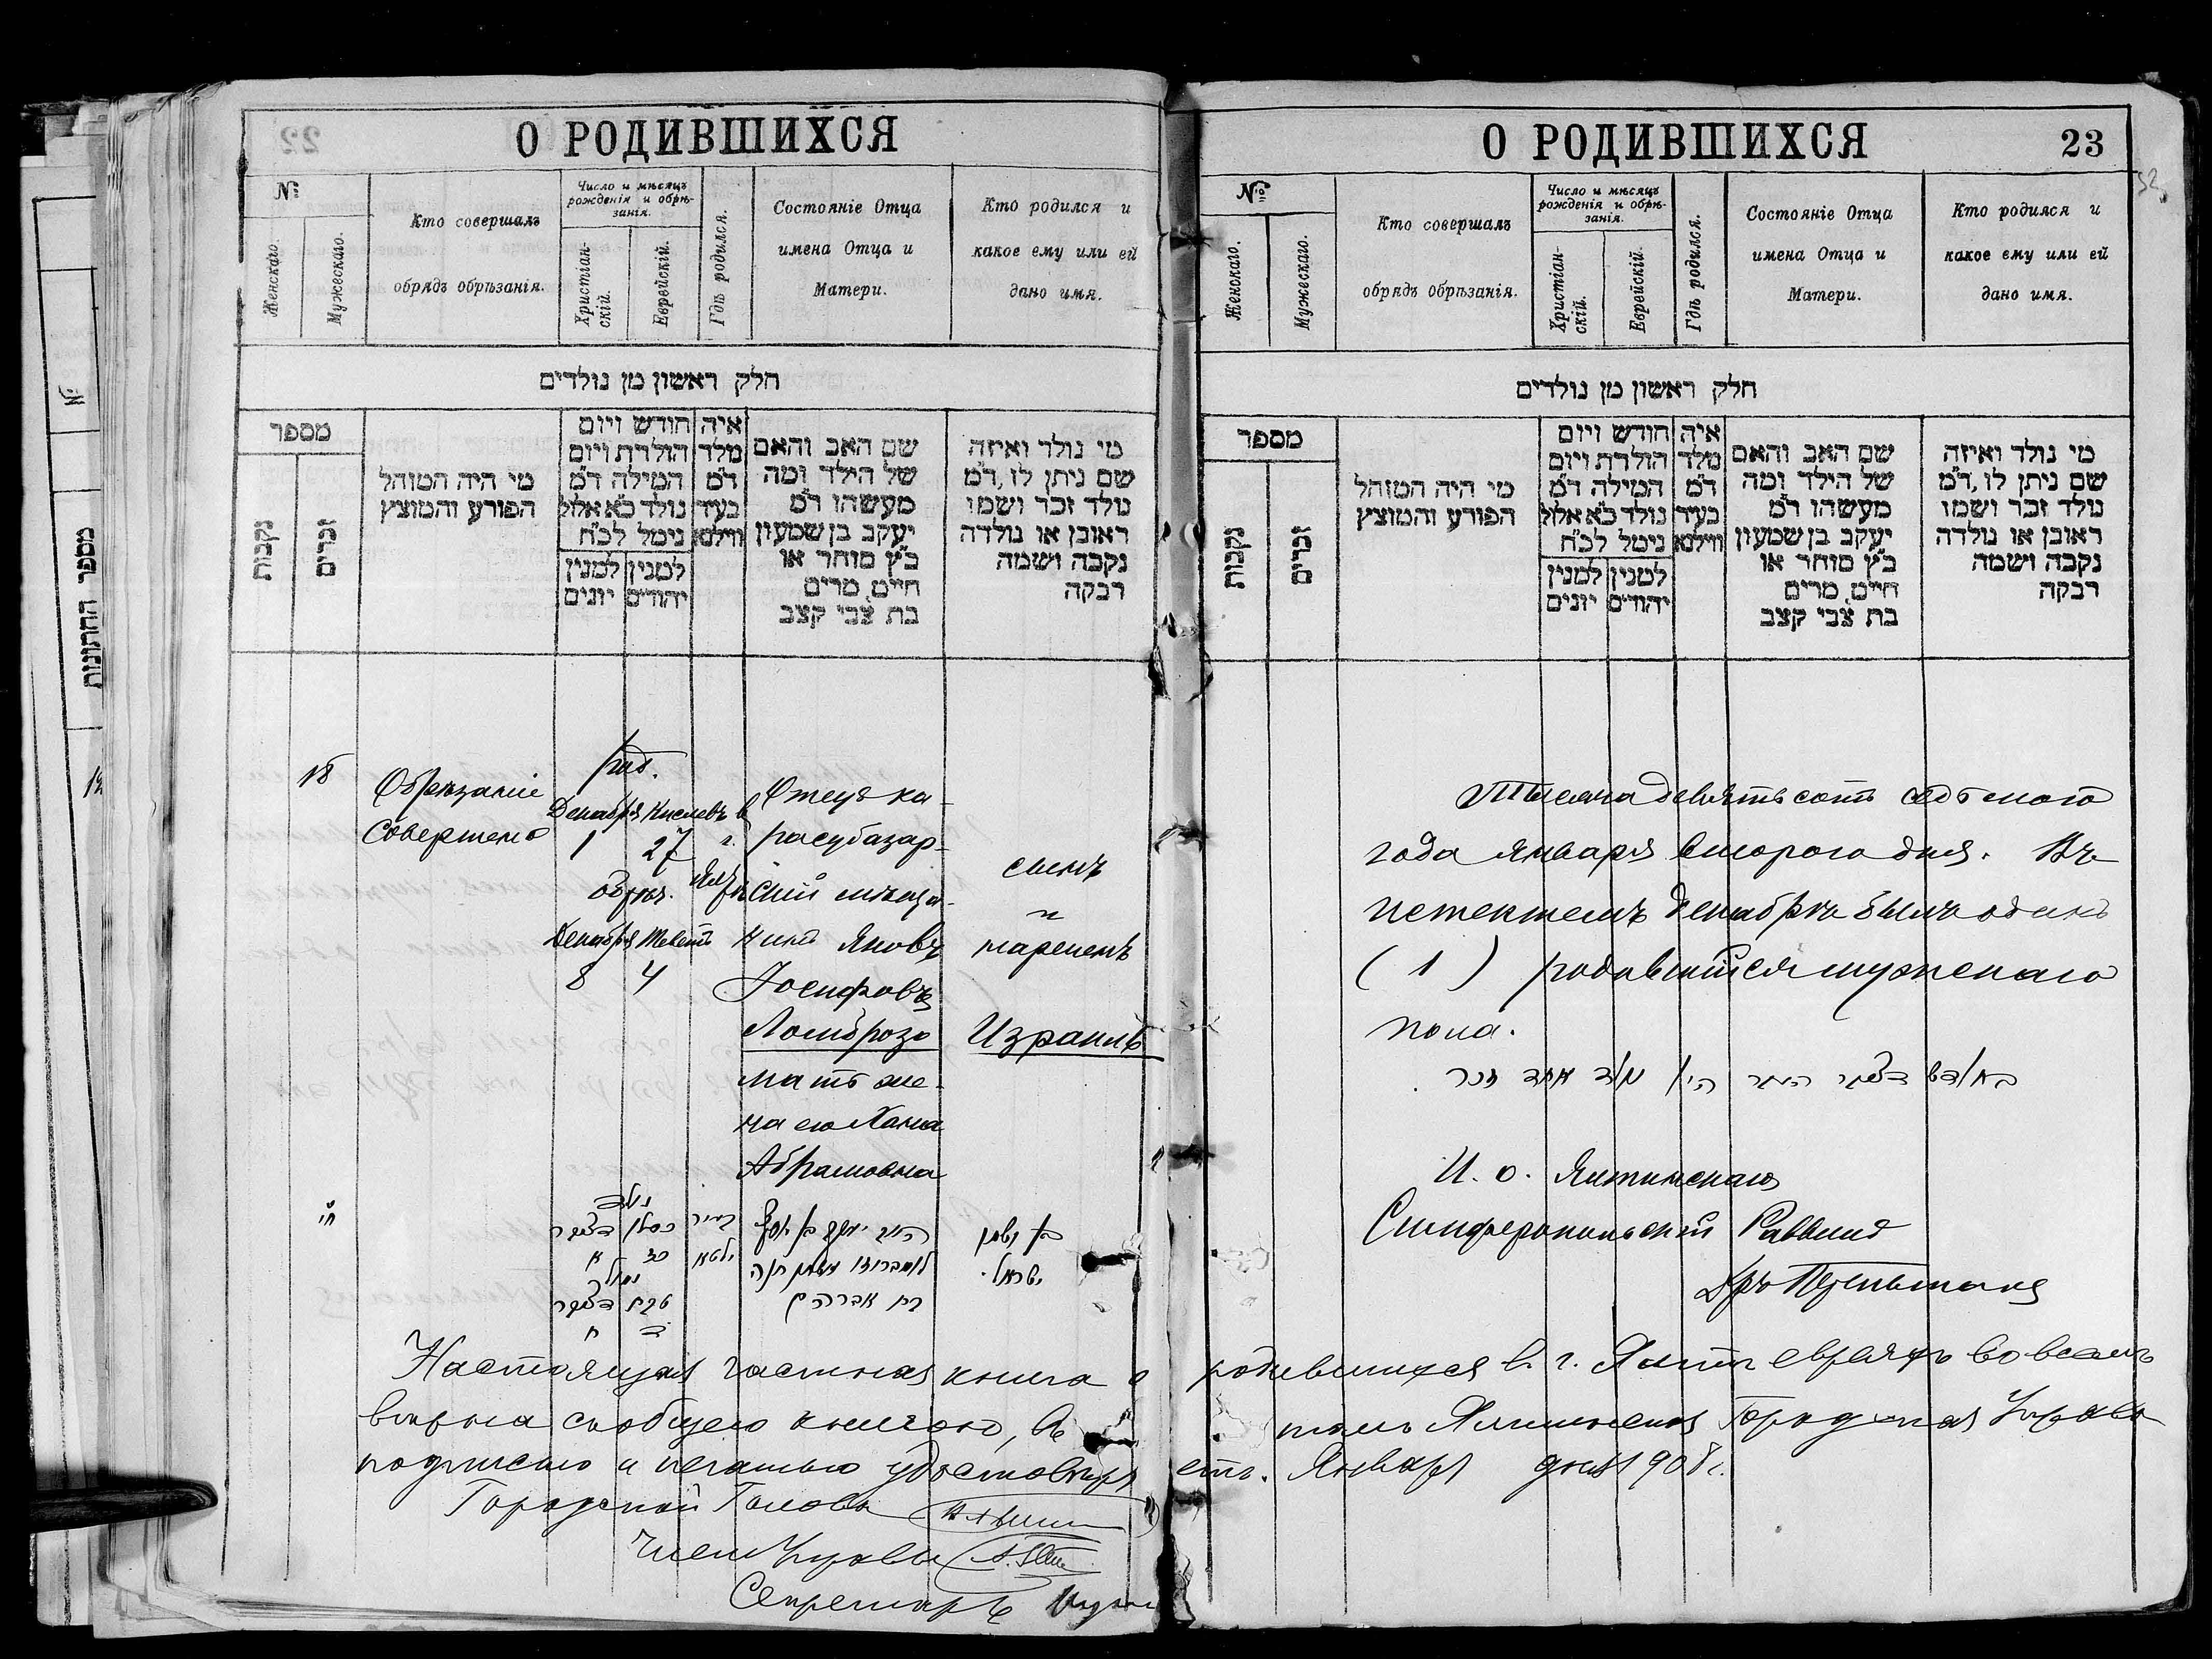 О РОДИВШИХСЯ
№
Женскаго.
Мужескаго.
Кто совершалъ
обрядъ обрѣзанія.
Число и мѣсяцъ
рожденія и обрѣ-
занія.
Христіан-
скій.
Еврейскій.
Гдѣ родился.
Состояніе Отца
имена Отца и
Матери.
Кто родился и
какое ему или ей
дано имя.
חלק ראשון מן נולדים
מספר
נקבות
זכרים
מי היה המוהל
הפורע והמוצץ
חודש ויום
הולדת ויום
המילה ד״מ
נולד כ״א אלול
נימל לכ״ח
למנין למנין
יהודים יונים
איה
מלד
ד״מ
בעיר
ווילנא
שם האב והאם
של הילד ומה
מעשהו ד״מ
יעקב בן שמעון
כ״ץ סוחר או
חייט, מרים
בת צבי קצב
מי נולד ואיזה
שם ניתן לו, ד״מ
נולד זכר ושמו
ראובן או נולדה
נקבה ושמה
רבקה
18
Обрѣзаніе
совершено
род.
Декабря Кислевъ
1 27
обрѣз.
Декабря Теветъ
8 4
в
г.
Ялтѣ
Отецъ ка-
расубазар-
скій мѣща-
нинъ Яковъ
Іосифовъ
Ломброзо
мать же-
на его Хана
Абрамовна
сынъ
и
нареченъ
Израиль
נולד
כסלו דצמבר
כז א
נימול
טבת דצמבר
ד ח
בעיר
יאלטא
האב יעקב בן יוסף
לומברוזו והאם חנה
בת אברהם
בן ושמו
ישראל.
Настоящая частная книга о родившихся в г. Ялтѣ евреяхъ во всемъ
вѣрна съ общею книгою, въ томъ Ялтинская Городская Управа
подписью и печатью удостовѣряетъ. Января дня 1908 г.
Городской Голова
Членъ Управы
Секретарь
О РОДИВШИХСЯ
23
№
Женскаго.
Мужескаго.
Кто совершалъ
обрядъ обрѣзанія.
Число и мѣсяцъ
рожденія и обрѣ-
занія.
Христіан-
скій.
Еврейскій.
Гдѣ родился.
Состояніе Отца
имена Отца и
Матери.
Кто родился и
какое ему или ей
дано имя.
חלק ראשון מן נולדים
מספר
נקבות
זכרים
מי היה המוהל
הפורע והמוצץ
חודש ויום
הולדת ויום
המילה ד״מ
נולד כ״א אלול
נימל לכ״ח
למנין למנין
יהודים יונים
איה
מלד
ד״מ
בעיר
ווילנא
שם האב והאם
של הילד ומה
מעשהו ד״מ
יעקב בן שמעון
כ״ץ סוחר או
חייט, מרים
בת צבי קצב
מי נולד ואיזה
שם ניתן לו, ד״מ
נולד זכר ושמו
ראובן או נולדה
נקבה ושמה
רבקה
Тысяча девятьсотъ седьмого
года января второго дня. Въ
истекшемъ декабрѣ былъ одинъ
(1) родившійся мужескаго
пола.
בחודש דצמבר היה נולד אחד זכר
И. о. Ялтинскаго
Симферопольскій Раввинъ
מספר החתונות